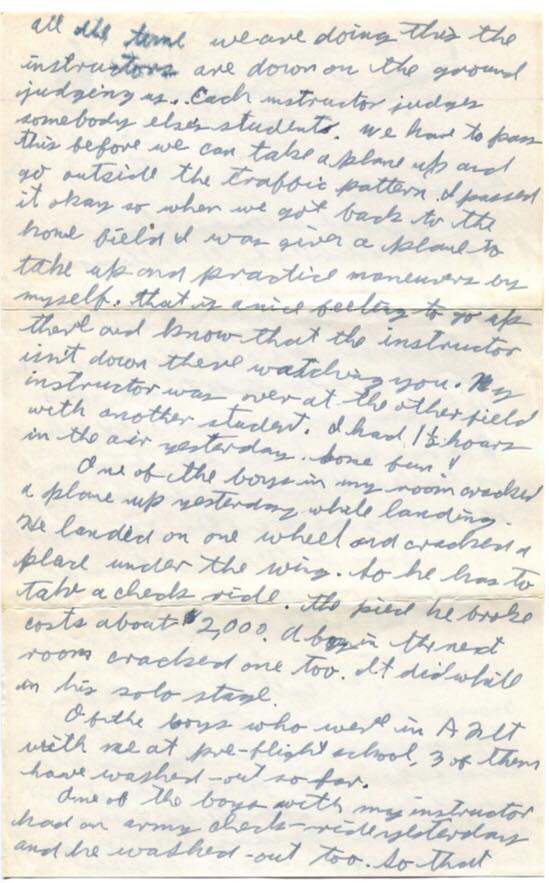 all the time we are doing this the
instructors are down on the ground
judging us. Each instructor judges
somebody else's students. We have to pass
this before we can take a plane up and
go outside the traffic pattern. I passed
it okay so when we got back to the
home field I was given a plane to
take up and practice maneuvers by
myself. That is a nice feeling to go up
there and know that the instructor
isn't down there watching you. My
instructor was over at the other field
with another student. I had 1½ hours
in the air yesterday. Some fun!
One of the boys in my room cracked
a plane up yesterday while landing.
He landed on one wheel and cracked a
place under the wing. So he has to
take a check ride. The piece he broke
costs about $2,000. A boy in the next
room cracked one too. It did while
in his solo stage.
Of the boys who were in A Flt
with me at pre-flight school, 3 of them
have washed-out so far.
One of the boys with my instructor
had an army check-ride yesterday
and he washed-out too. So that